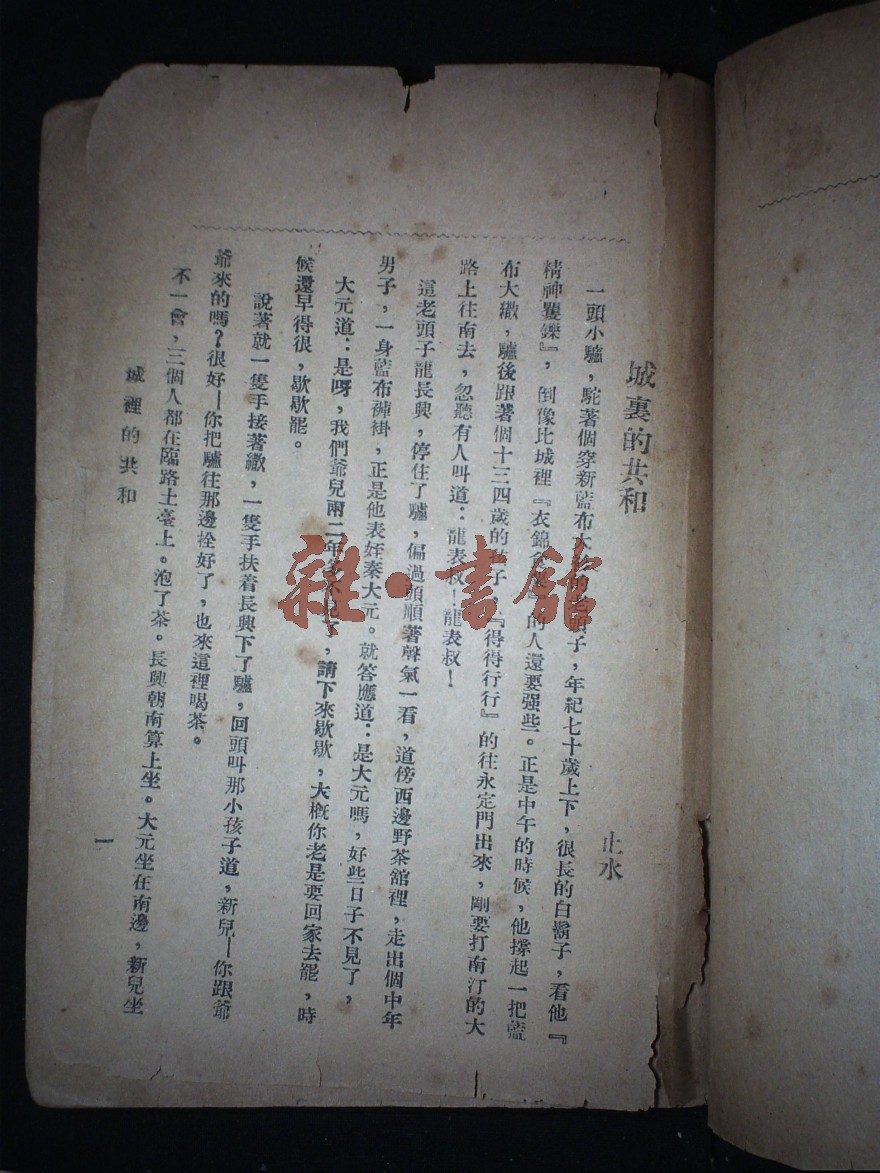 城裏的共和
止水
一頭小驢，駝著個穿新藍布大的老頭子，年紀七十歲上下，很長的白鬍子，看他『
精神矍鑠』，倒像比城裡『衣錦食』的人還要强些。正是中午的時候，他撐起一把藍
布大繖，驢後跟著個十三四歲的孩子，『得得行行』的往永定門出來，剛要打南汀的大
路上往南去，忽聽有人叫道：龍表叔！龍表叔！
這老頭子龍長興，停住了驢，偏過頭順著聲氣一看，道傍西邊野茶舘裡，走出個中年
男子，一身藍布褲褂，正是他表姪秦大元。就答應道：是大元嗎，好些日子不見了，
大元道：是呀，我們爺兒兩二年多不見了，請下來歇歇，大槪你老是要回家去罷，時
候還早得很，歇歇罷。
說著就一隻手接著繖，一隻手扶着長興下了驢，回頭叫那小孩子道，新兒—你跟爺
爺來的嗎？很好—你把驢往那邊拴好了，也來這裡喝茶。
不一會，三個人都在臨路土臺上。泡了茶。長興朝南算上坐。大元坐在南邊，新兒坐
城裡的共和
一
雜·書舘